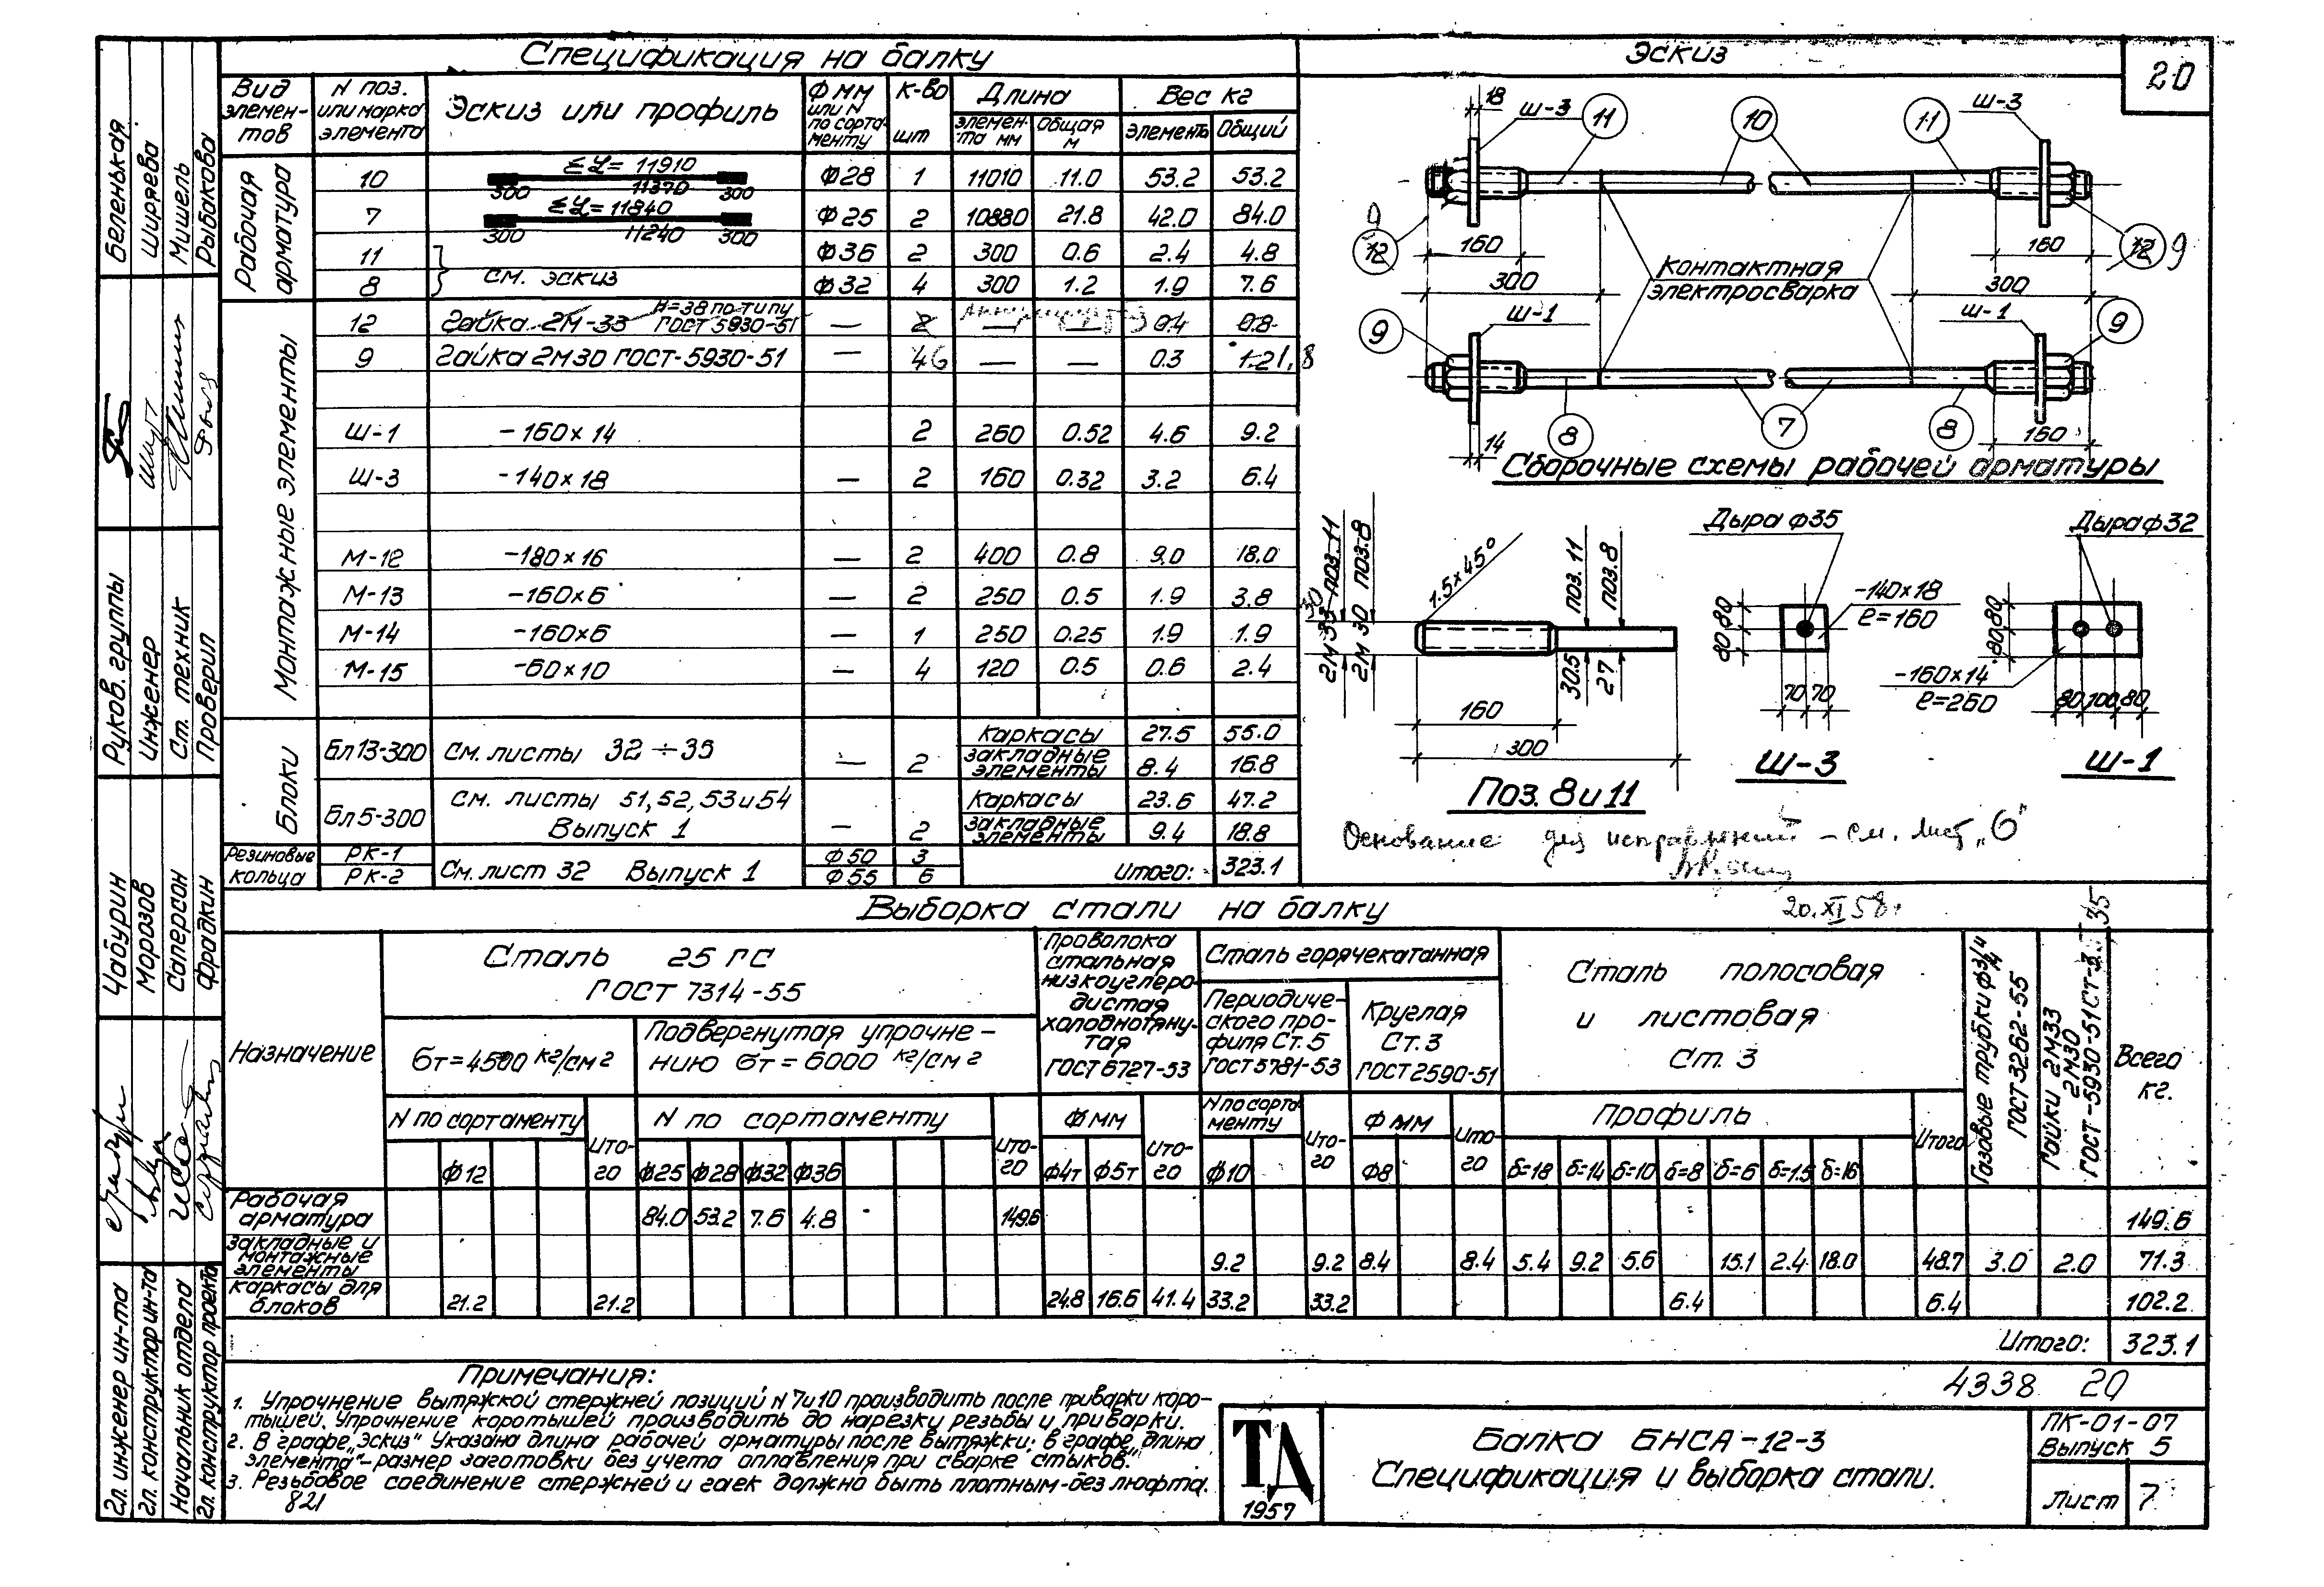 Спецификация на балку
Эскиз
20
Вид элемен-тов
N поз. или марка элемента
Эскиз или профиль
Ф мм или N по сорта-менту
К-во шт
Длина
элемен-та мм
Общая м
Вес кг
элемента
Общий
Рабочая арматура
10 ΣL = 11910 300 11370 300 Ф28 1 11010 11.0 53.2 53.2
7 ΣL = 11840 300 11240 300 Ф25 2 10880 21.8 42.0 84.0
11 Ф36 2 300 0.6 2.4 4.8
см. эскиз
8 Ф32 4 300 1.2 1.9 7.6
Монтажные элементы
12 Гайка 2М-33 H=38 по типу ГОСТ 5930-51 — 2 — — 0.4 0.8
9 Гайка 2М30 ГОСТ-5930-51 — 4 6 — — 0.3 1.2 1,8
Ш-1 -160×14 2 260 0.52 4.6 9.2
Ш-3 -140×18 — 2 160 0.32 3.2 6.4
М-12 -180×16 — 2 400 0.8 9.0 18.0
М-13 -160×6 — 2 250 0.5 1.9 3.8
М-14 -160×6 — 1 250 0.25 1.9 1.9
М-15 -60×10 — 4 120 0.5 0.6 2.4
Блоки
Бл 13-300 См. листы 32÷35 — 2 Каркасы 27.5 55.0
закладные элементы 8.4 16.8
Бл 5-300 См. листы 51, 52, 53 и 54 Выпуск 1 — 2 Каркасы 23.6 47.2
закладные элементы 9.4 18.8
Резиновые кольца
РК-1 Ф50 3
РК-2 Ф55 6
См. лист 32 Выпуск 1
Итого: 323.1
18 Ш-3 11 10 11 Ш-3
9 12 160 160 12 9
300 Контактная электросварка 300
9 Ш-1 Ш-1 9
14 8 7 8 160
Сборочные схемы рабочей арматуры
30
2М 33 поз. 11
2М 30 поз. 8
1.5×45°
поз. 11
поз. 8
30.5
27
160
300
Поз. 8 и 11
Дыра ф35
80 80
-140×18
ℓ=160
70 70
Ш-3
Дыра ф32
80 80
-160×14
ℓ=260
80 100 80
Ш-1
Основание для исправлений – см. лист „6"
20.XI 58г.
Выборка стали на балку
Назначение
Сталь 25 ГС
ГОСТ 7314-55
бт = 4500 кг/см2
Подвергнутая упрочне-
нию бт = 6000 кг/см2
N по сортаменту
Ф12
Ито-го
N по сортаменту
Ф25 Ф28 Ф32 Ф36
Ито-го
Проволока стальная низкоуглеро-дистая холоднотяну-тая
ГОСТ 6727-53
Ф мм
Ф4т Ф5т
Ито-го
Сталь горячекатанная
Периодиче-ского про-филя Ст. 5
ГОСТ 5781-53
N по сорта-менту
Ф10
Ито-го
Круглая
Ст. 3
ГОСТ 2590-51
Ф мм
Ф8
Ито-го
Сталь полосовая
и листовая
Ст. 3
Профиль
δ=18 δ=14 δ=10 δ=8 δ=6 δ=1.5 δ=16
Итого
Газовые трубки ф3/4
ГОСТ 3262-55
Гайки 2М33
2М30
ГОСТ-5930-51 Ст- 35
Всего кг.
Рабочая арматура 84.0 53.2 7.6 4.8 149.6 149.6
закладные и монтажные элементы 9.2 9.2 8.4 8.4 5.4 9.2 5.6 15.1 2.4 18.0 48.7 3.0 2.0 71.3
каркасы для блоков 21.2 21.2 24.8 16.6 41.4 33.2 33.2 6.4 6.4 102.2
Итого: 323.1
4338 20
Примечания:
1. Упрочнение вытяжкой стержней позиций N 7 и 10 производить после приварки коро-
тышей. Упрочнение коротышей производить до нарезки резьбы и приварки.
2. В графе „Эскиз" указана длина рабочей арматуры после вытяжки; в графе „длина
элемента"-размер заготовки без учета оплавления при сварке стыков.
3. Резьбовое соединение стержней и гаек должно быть плотным-без люфта.
821
ТД
1957
Балка БНСА-12-3
Спецификация и выборка стали.
ПК-01-07
Выпуск 5
Лист 7
Беленькая
Ширяева
Мишель
Рыбакова
Руков. группы
Инженер
Ст. техник
Проверил
Чабурин
Морозов
Саперсон
Фрадкин
Гл. инженер ин-та
Гл. конструктор ин-та
Начальник отдела
Гл. конструктор проекта